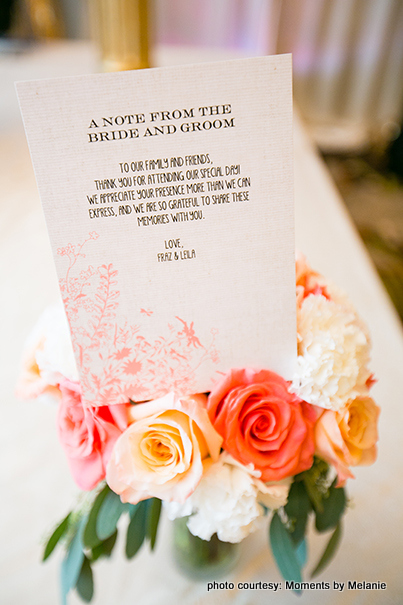 A NOTE FROM THE
BRIDE AND GROOM
TO OUR FAMILY AND FRIENDS,
THANK YOU FOR ATTENDING OUR SPECIAL DAY!
WE APPRECIATE YOUR PRESENCE MORE THAN WE CAN
EXPRESS, AND WE ARE SO GRATEFUL TO SHARE THESE
MEMORIES WITH YOU.
LOVE,
FRAZ & LEILA
photo courtesy: Moments by Melanie